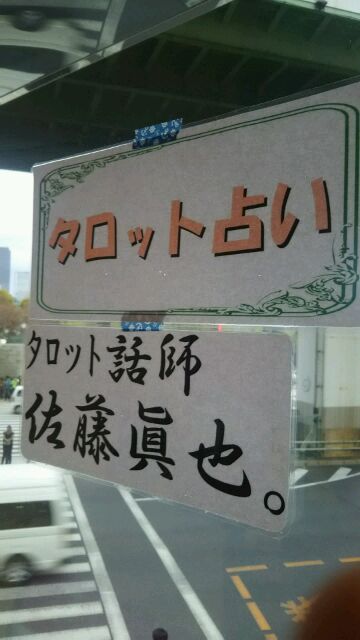 タロット占い
タロット話師
佐藤眞也。